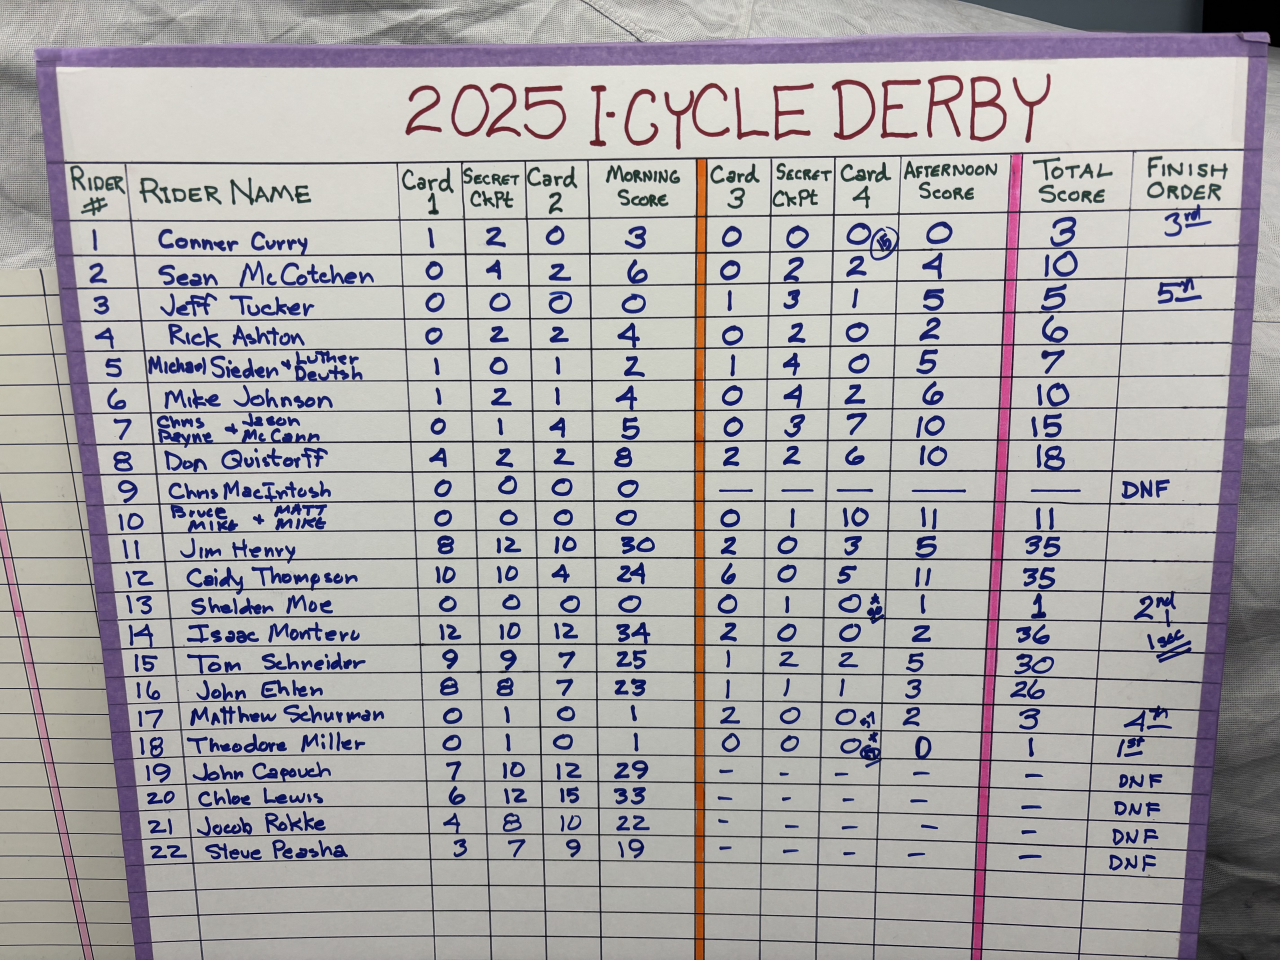 2025 I-CYCLE DERBY
RIDER # RIDER NAME Card 1 SECRET CKPt Card 2 MORNING SCORE Card 3 SECRET CKPt Card 4 AFTERNOON SCORE TOTAL SCORE FINISH ORDER
1 Conner Curry 1 2 0 3 0 0 0 15 0 3 3rd
2 Sean McCotchen 0 4 2 6 0 2 2 4 10
3 Jeff Tucker 0 0 0 0 1 3 1 5 5 5th
4 Rick Ashton 0 2 2 4 0 2 0 2 6
5 Michael Sieden + Luther Deutsh 1 0 1 2 1 4 0 5 7
6 Mike Johnson 1 2 1 4 0 4 2 6 10
7 Chris Payne + Jason McCann 0 1 4 5 0 3 7 10 15
8 Don Quistorff 4 2 2 8 2 2 6 10 18
9 Chris MacIntosh 0 0 0 0 — — — — — DNF
10 Bruce MIKE + MATT MIKE 0 0 0 0 0 1 10 11 11
11 Jim Henry 8 12 10 30 2 0 3 5 35
12 Caidy Thompson 10 10 4 24 6 0 5 11 35
13 Shelden Moe 0 0 0 0 0 1 0 * 1 1 2nd
14 Isaac Montero 12 10 12 34 2 0 0 2 36 1 sec
15 Tom Schneider 9 9 7 25 1 2 2 5 30
16 John Ehlen 8 8 7 23 1 1 1 3 26
17 Matthew Schurman 0 1 0 1 2 0 0 2 3 4th
18 Theodore Miller 0 1 0 1 0 0 0 * 0 1 1st
19 John Capouch 7 10 12 29 - - - - - DNF
20 Chloe Lewis 6 12 15 33 - - - - - DNF
21 Jacob Rokke 4 8 10 22 - - - - - DNF
22 Steve Peasha 3 7 9 19 - - - - - DNF